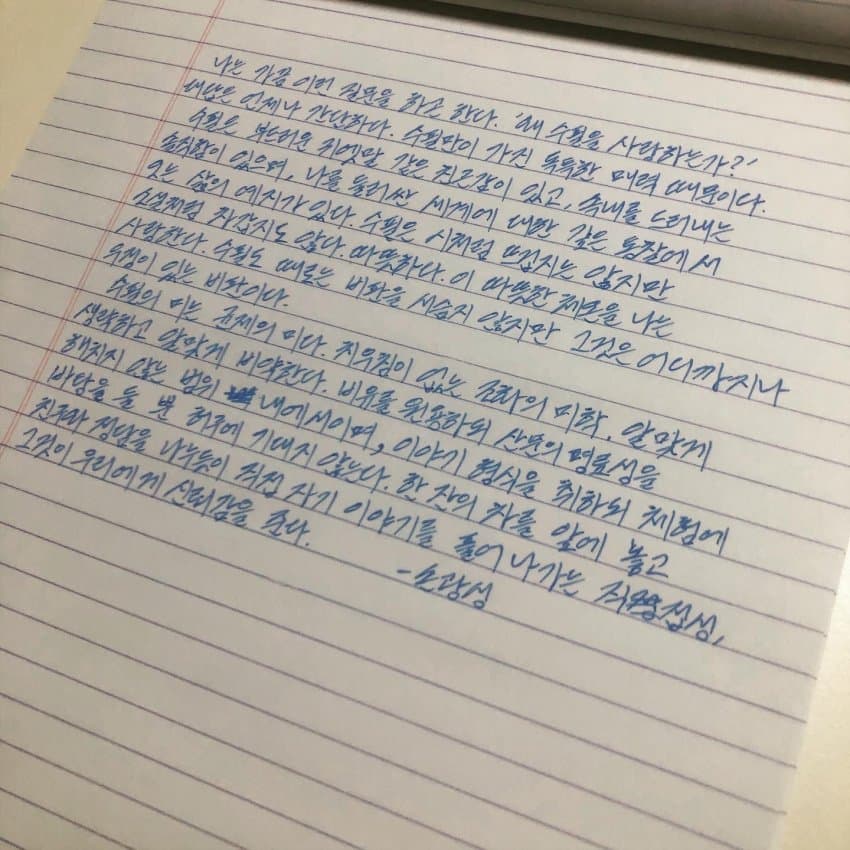 나는 가끔 이런 질문을 하곤 한다. '왜 수필을 사랑하는가?'
대답은 언제나 간단하다. 수필만이 가진 독특한 매력 때문이다.
수필은 부드러운 귀엣말 같은 친근감이 있고, 속내를 드러내는
솔직함이 있으며, 나를 둘러싼 세계에 대한 깊은 통찰에서
오는 삶의 예지가 있다. 수필은 시처럼 뜨겁지는 않지만
소설처럼 차갑지도 않다. 따뜻하다. 이 따뜻한 체온을 나는
사랑한다. 수필도 때로는 비판을 서슴지 않지만 그것은 어디까지나
우정이 있는 비판이다.
수필의 미는 균제의 미다. 치우침이 없는 조화의 미학. 알맞게
생략하고 알맞게 비약한다. 비유를 원용하되 산문의 명료성을
해치지 않는 범위 내에서이며, 이야기 형식을 취하되 체험에
바탕을 둘 뿐 허구에 기대지 않는다. 한 잔의 차를 앞에 놓고
친구와 정담을 나누듯이 직접 자기 이야기를 풀어 나가는 직접성,
그것이 우리에게 신뢰감을 준다.
- 손광성